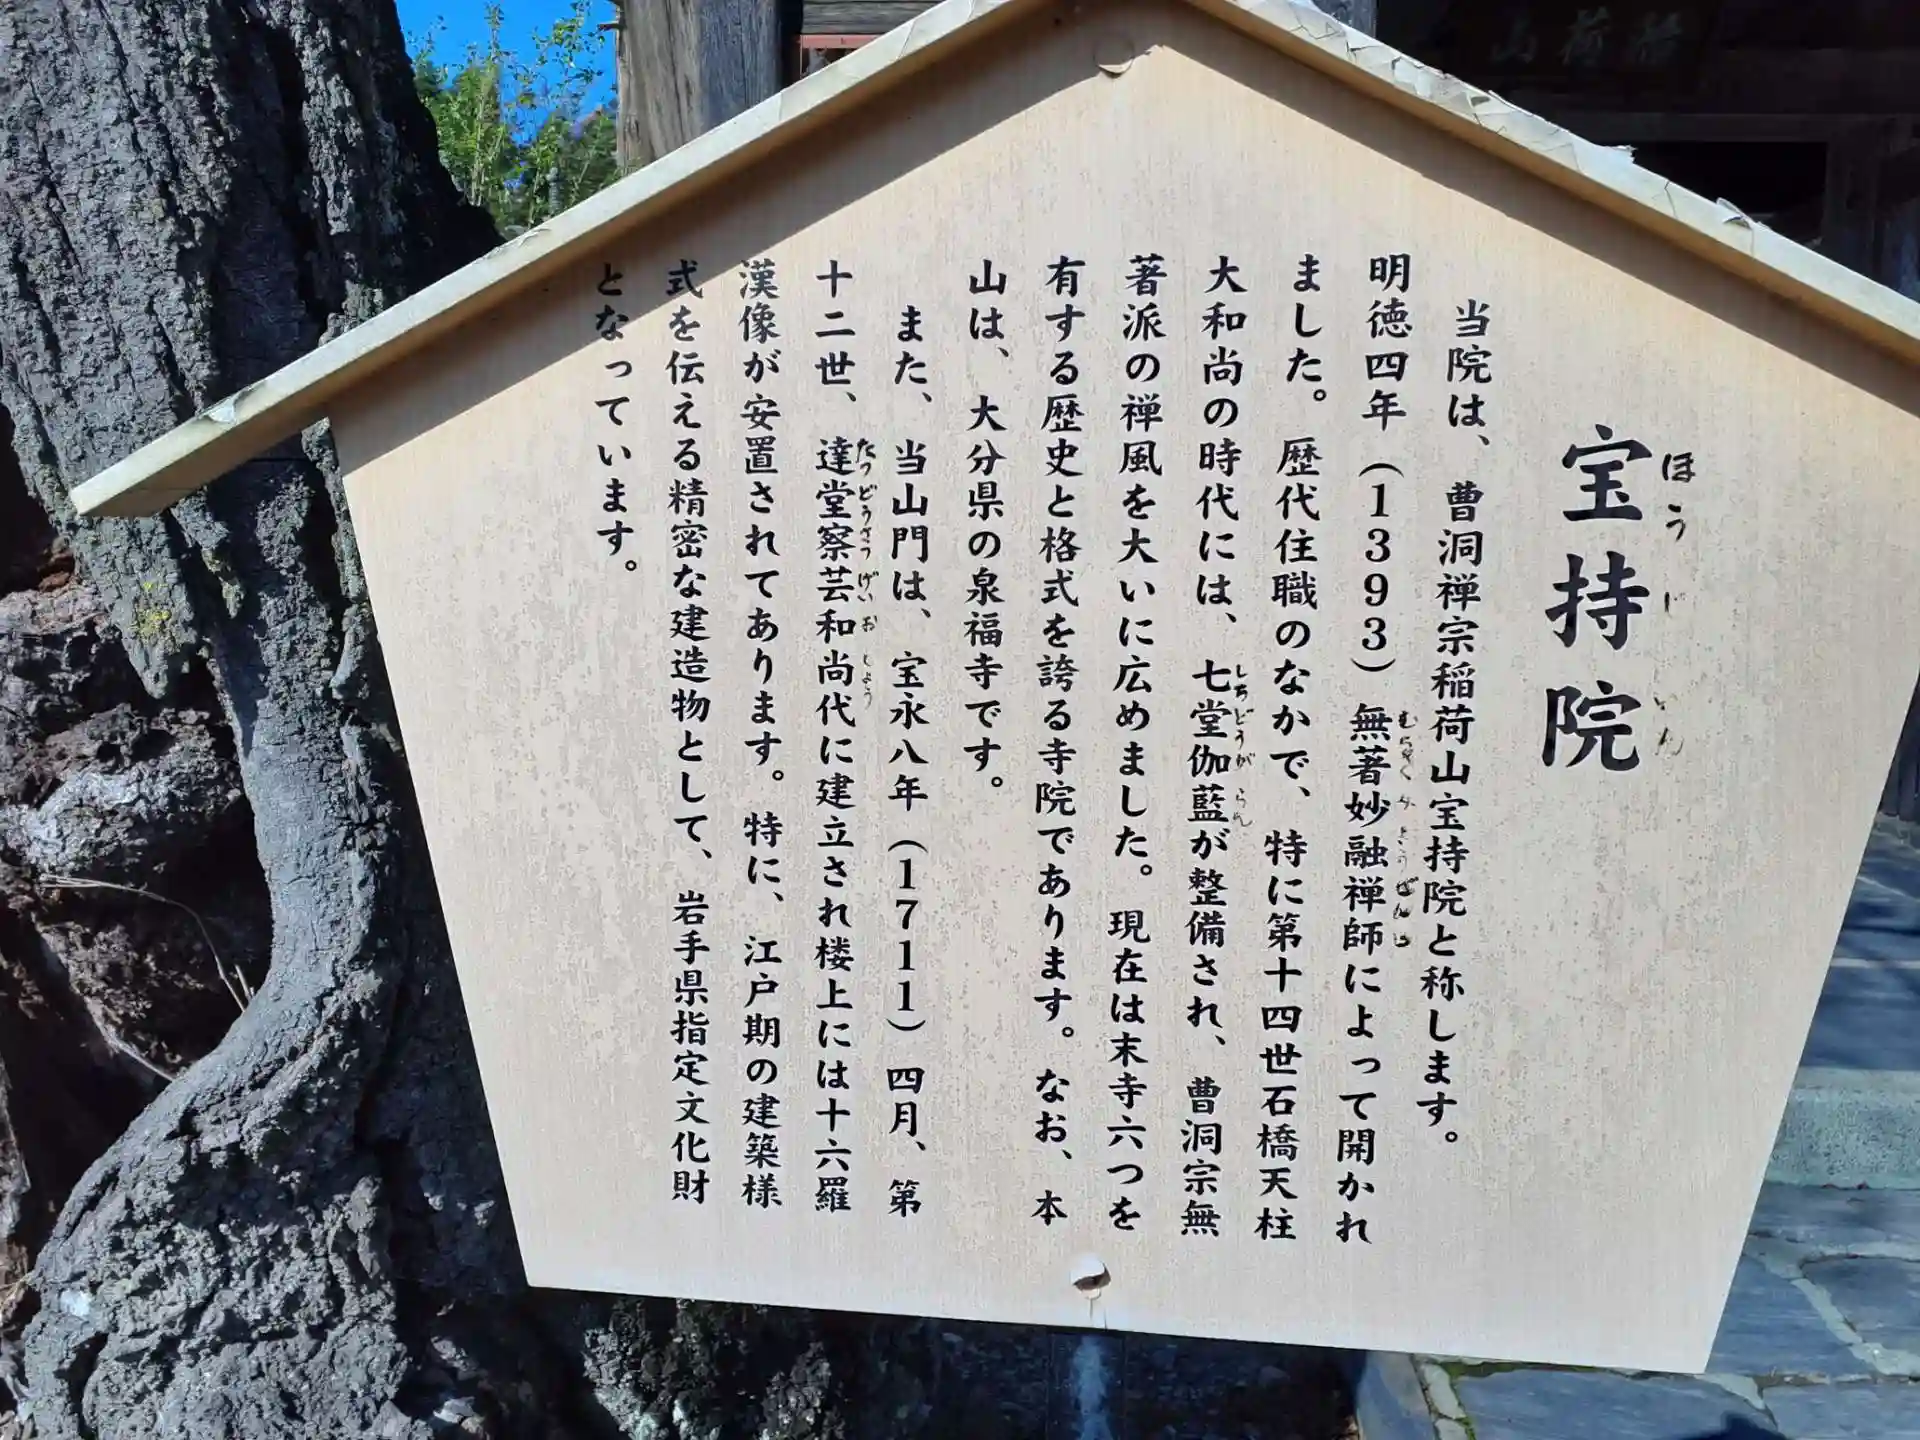 宝持院
ほうじいん
当院は、曹洞禅宗稲荷山宝持院と称します。
明徳四年（1393）無著妙融禅師によって開かれ
むちゃくみょうゆうぜんじ
ました。歴代住職のなかで、特に第十四世石橋天柱
大和尚の時代には、七堂伽藍が整備され、曹洞宗無
しちどうがらん
著派の禅風を大いに広めました。現在は末寺六つを
有する歴史と格式を誇る寺院であります。なお、本
山は、大分県の泉福寺です。
また、当山門は、宝永八年（1711）四月、第
十二世、達堂察芸和尚代に建立され楼上には十六羅
たつどうさつげいおしょう
漢像が安置されてあります。特に、江戸期の建築様
式を伝える精密な建造物として、岩手県指定文化財
となっています。